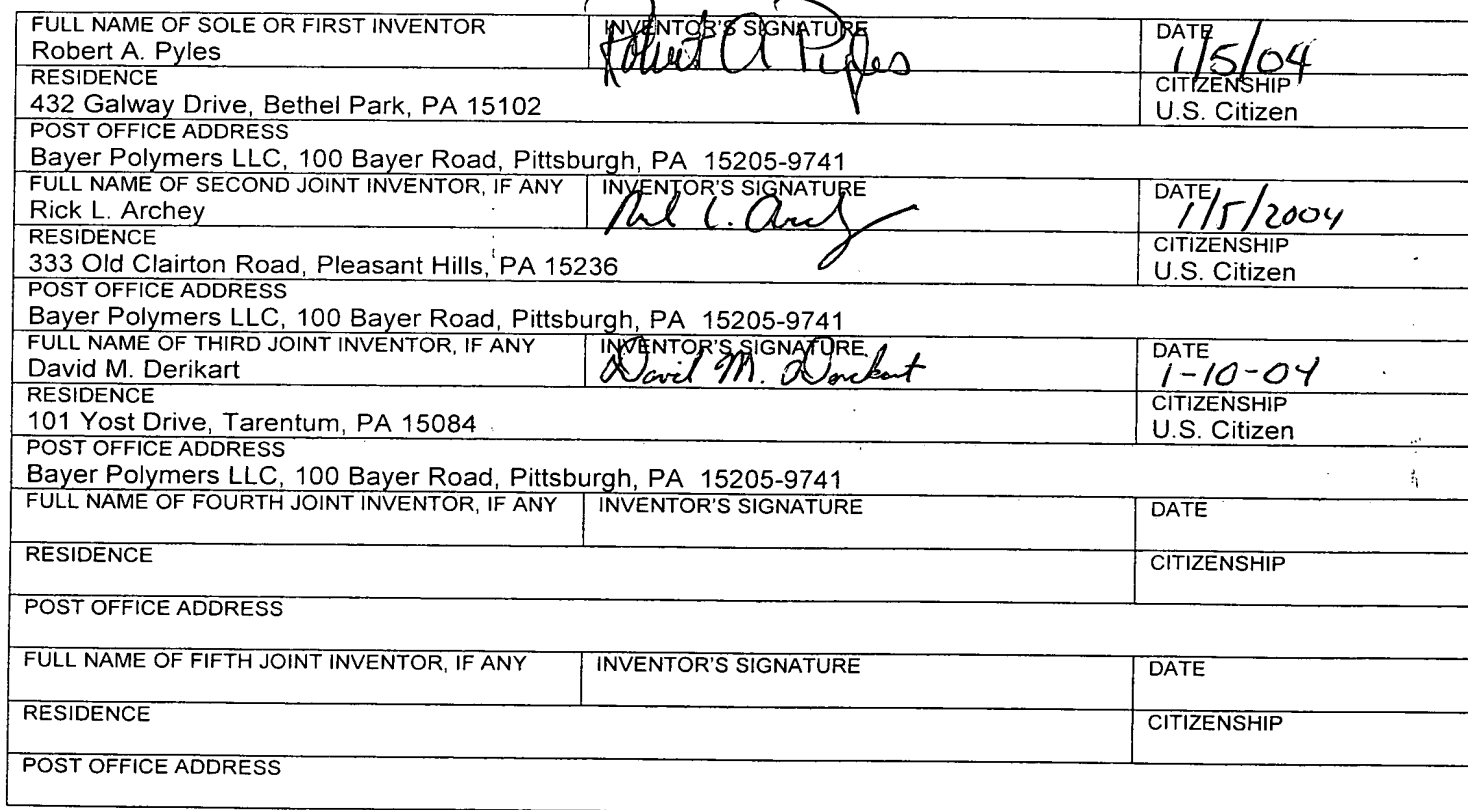 FULL NAME OF SOLE OR FIRST INVENTOR INVENTOR'S SIGNATURE DATE
Robert A. Pyles Robert A Pyles 1/5/04
RESIDENCE CITIZENSHIP
432 Galway Drive, Bethel Park, PA 15102 U.S. Citizen
POST OFFICE ADDRESS
Bayer Polymers LLC, 100 Bayer Road, Pittsburgh, PA 15205-9741
FULL NAME OF SECOND JOINT INVENTOR, IF ANY INVENTOR'S SIGNATURE DATE
Rick L. Archey 1/5/2004
RESIDENCE CITIZENSHIP
333 Old Clairton Road, Pleasant Hills, PA 15236 U.S. Citizen
POST OFFICE ADDRESS
Bayer Polymers LLC, 100 Bayer Road, Pittsburgh, PA 15205-9741
FULL NAME OF THIRD JOINT INVENTOR, IF ANY INVENTOR'S SIGNATURE DATE
David M. Derikart David M. Derikart 1-10-04
RESIDENCE CITIZENSHIP
101 Yost Drive, Tarentum, PA 15084 U.S. Citizen
POST OFFICE ADDRESS
Bayer Polymers LLC, 100 Bayer Road, Pittsburgh, PA 15205-9741
FULL NAME OF FOURTH JOINT INVENTOR, IF ANY INVENTOR'S SIGNATURE DATE
RESIDENCE CITIZENSHIP
POST OFFICE ADDRESS
FULL NAME OF FIFTH JOINT INVENTOR, IF ANY INVENTOR'S SIGNATURE DATE
RESIDENCE CITIZENSHIP
POST OFFICE ADDRESS